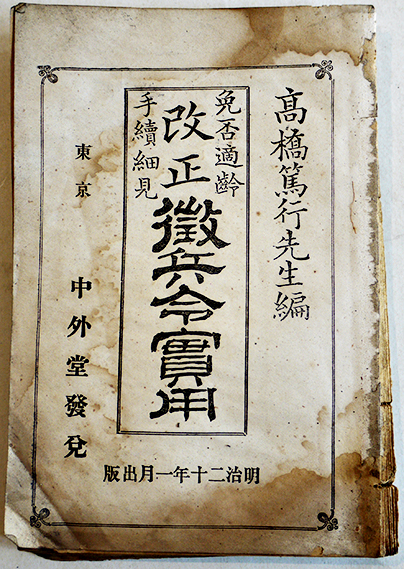 高橋篤行先生編
免否適齡
手續細見
改正徵兵令實用
東京
中外堂發兌
明治二十年一月出版